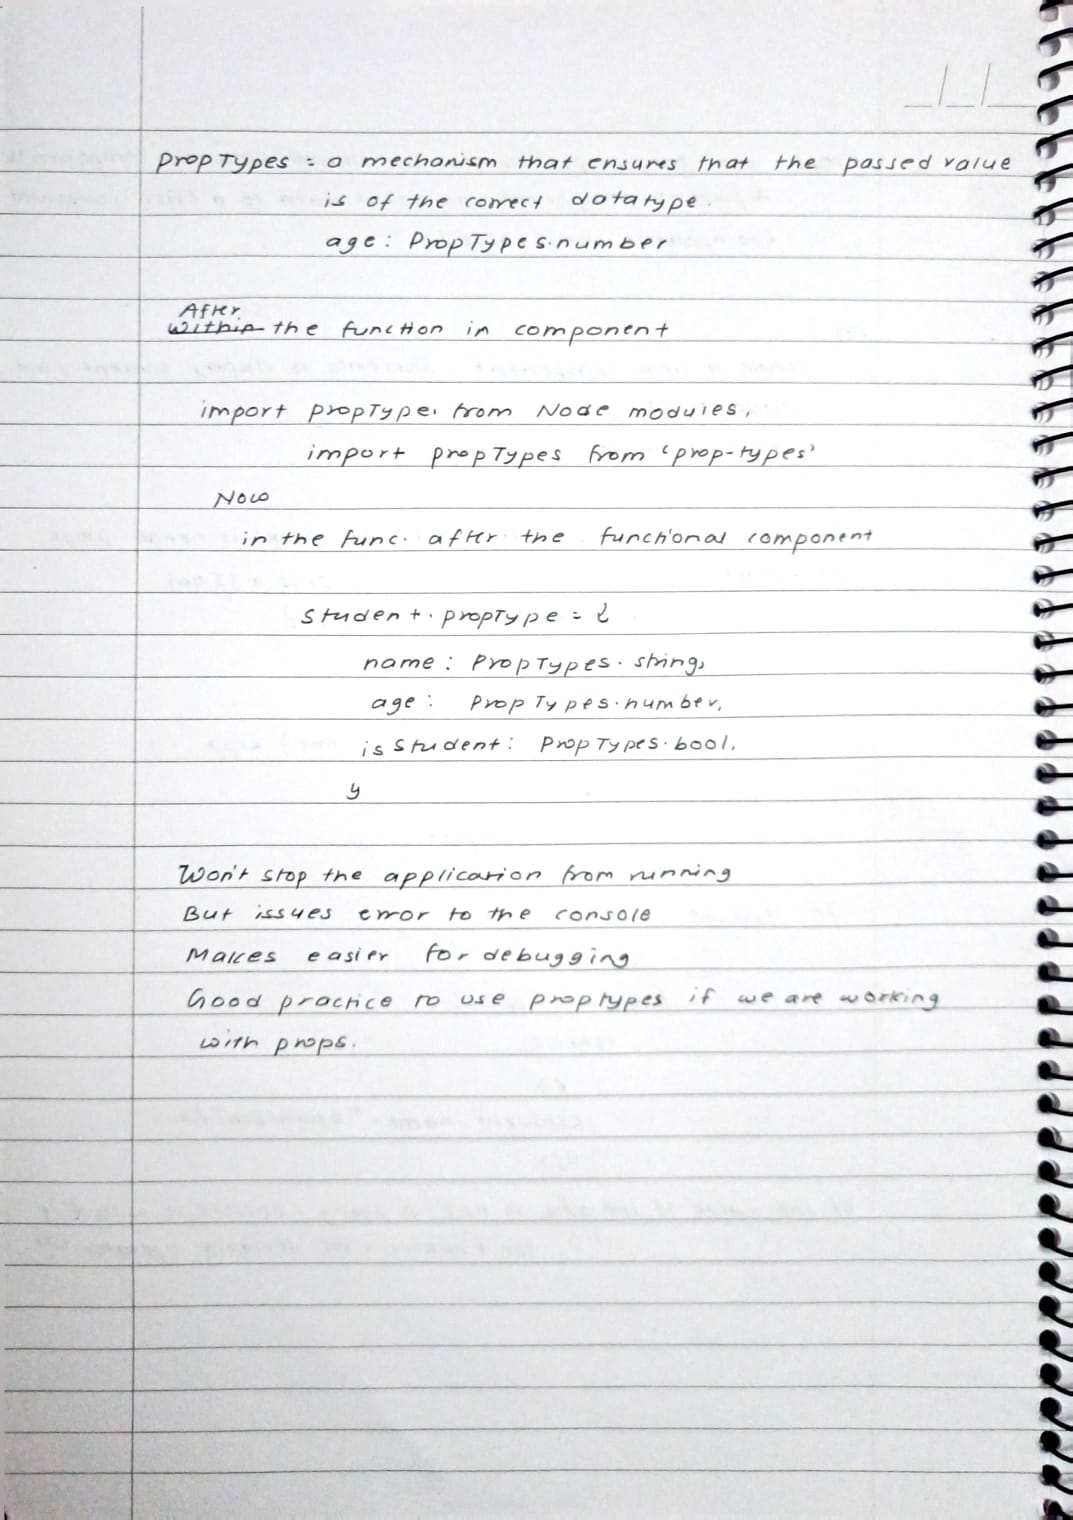 PropTypes = a mechanism that ensures that the passed value
is of the correct datatype.
age: PropTypes.number
After
Within the function in component
import propType. from Node modules.
import propTypes from 'prop-types'
Now
in the func. after the functional component
Student.propType = {
name: PropTypes.string,
age: PropTypes.number,
isStudent: PropTypes.bool,
}
Won't stop the application from running
But issues error to the console
Makes easier for debugging
Good practice to use proptypes if we are working
with props.